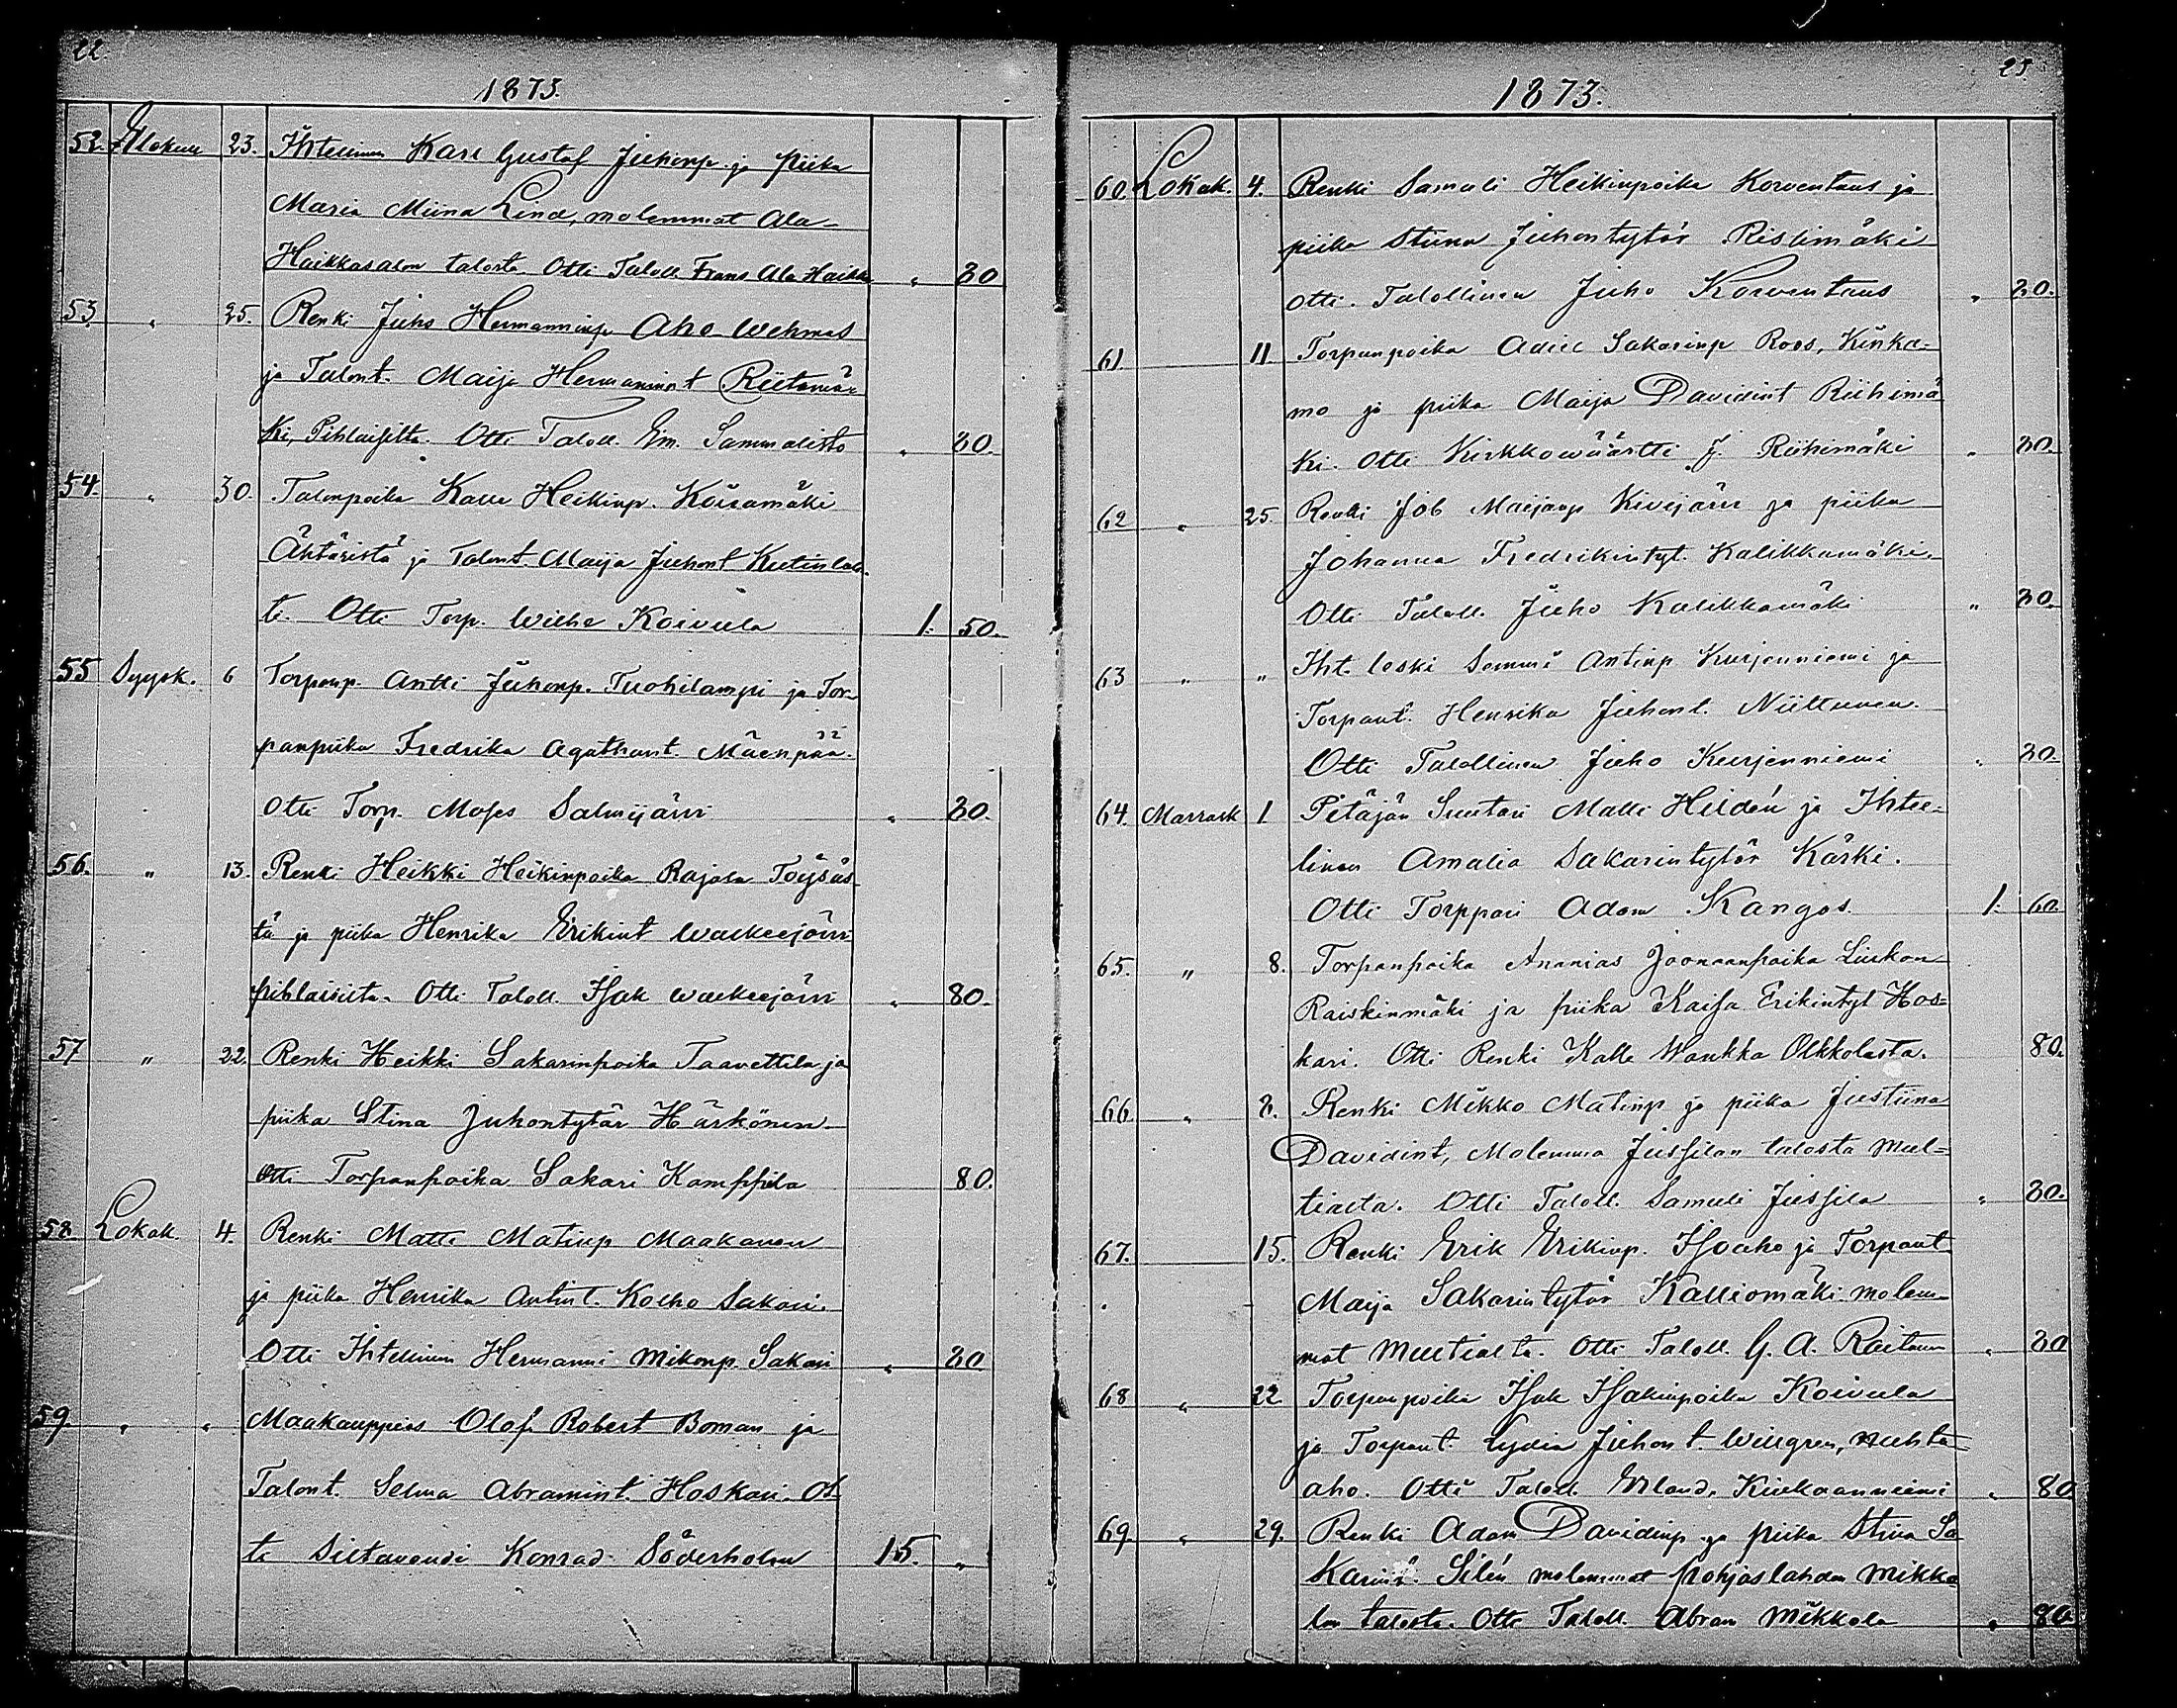 22.
1873.
52. Elokuu 23. Ihtellinen Karl Gustaf Juhonp. ja piika
Maria Miina Lind, molemmat Ala-
Haikkasalon talosta Otti Taloll. Frans Ala Haikka „ 80
53. „ 25. Renki Juho Hermanninp. Aho Wehmas
ja Talont. Maija Hermanint Riitamä-
ki, Pihlaisilta. Otti Taloll. Em. Sammalisto „ 80.
54. „ 30. Talonpoika Kalle Heikinp. Koiramäki
Ähtäristä ja Talont. Maija Juhont Kutinlah-
ti. Otti Torp. Wilhe Koivula 1. 50.
55 Syysk. 6 Torpanp. Antti Juhonp. Tuohilampi ja Tor-
panpiika Fredrika Agathant. Mäenpää.
Otti Torp. Moses Salmijärvi „ 80.
56. „ 13. Renki Heikki Heikinpoika Rajala Töysäs-
tä ja piika Henrika Erikint Walkeejärvi
pihlaisilta. Otti Taloll. Isak Walkeejärvi „ 80.
57 „ 22. Renki Heikki Sakarinpoika Taavettila ja
piika Stina Juhontytär Härkönen
Otti Torpanpoika Sakari Kamppila 80.
58. Lokak. 4. Renki Matti Matinp Maakanen
ja piika Henrika Antint. Kolho Sakari.
Otti Ihtellinen Hermanni Mikonp. Sakari „ 80
59. „ „ Maakauppias Olof Robert Boman ja
Talont. Selma Abramint. Hoskari. Ot-
ti Siltavouti Konrad Söderholm 15. „
23
1873.
60. Lokak. 4. Renki Samuli Heikinpoika Korventaus ja
piika Stiina Juhontytär Ristimäki
Otti. Talollinen Juho Korventaus „ 80.
61. 11 Torpanpoika Adiel Sakarinp Roos, Kinka-
mo ja piika Maija Davidint Riihimä
ki. Otti Kirkkowäärtti J. Riihimäki „ 80.
62 „ 25. Renki Job Maijanp Kivijärvi ja piika
Johanna Fredrikintyt. Kalikkamäki.
Otti Taloll. Juho Kalikkamäki „ 80.
63 „ „ Iht. leski Sammi Antinp Kurjenniemi ja
Torpant. Henrika Juhont. Niittunen.
Otti Talollinen Juho Kurjenniemi „ 80.
64. Marrask 1. Pitäjän Suutari Malli Hildén ja Ihtel-
linen Amalia Sakarintytär Kärki.
Otti Torppari Adam Kangas. 1. 60.
65. „ 8. Torpanpoika Ananias Joonaanpoika Liukon
Raiskinmäki ja piika Kaisa Erikintyt Hos-
kari. Otti Renki Kalle Wankka Olkkolasta. 80.
66. „ 8. Renki Mikko Matinp ja piika Justiina
Davidint, Molemma Jussilan talosta Mul-
tialta. Otti Taloll. Samuli Jussila „ 80.
67. 15. Renki Erik Erikinp. Isoaho ja Torpant
Maija Sakarintytär Kalliomäki molem-
mat Multialta. Otti Taloll. G. A. Raitanen „ 80
68 „ 22 Torpanpoika Isak Isakinpoika Koivula
ja Torpant. Lydia Juhont. Willgren, Huhta-
aho. Otti Taloll. Erland. Kiukaanniemi „ 80
69. „ 29. Renki Adam Davidinp. ja piika Stina Sa
karint. Silén molemmat Pohjaslahden Mikko
lan talosta. Otti Taloll. Abram Mikkola „ 80